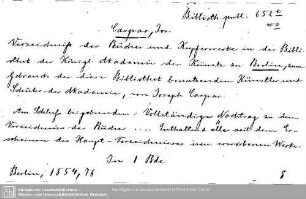 Biblioth. publ. 652 m
40
Caspar, Jos.
Verzeichniss der Bücher und Kupferwerke in der Biblio
thek der Königl. Akademie der Künste zu Berlin, zum
Gebrauch der diese Bibliothek benutzenden Künstler und
Schüler der Akademie, von Joseph Caspar.
Am Schluss beigebunden: Vollständiger Nachtrag zu dem
Verzeichniss der Bücher .... Enthaltend alle seit dem Er-
scheinen des Haupt-Verzeichnisses neu erworbenen Werke.
In 1 Bde
Berlin, 1854, 76
8